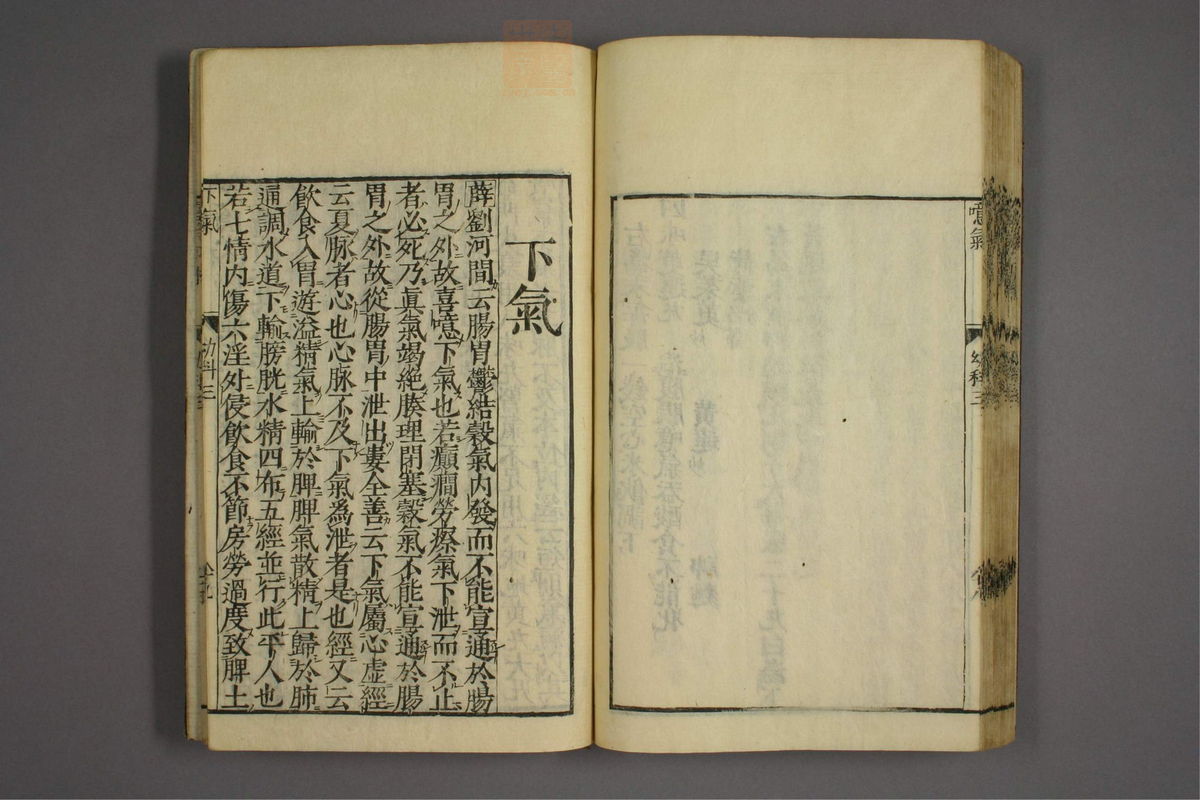 噫氣
幼科三
下氣
薛劉河間云腸胃鬱結穀氣內發而不能宣通於腸
胃之外故喜噫下氣也若癲癇勞瘵氣下泄而不止
者必死乃眞氣竭絶腠理閉塞穀氣不能宣通於腸
胃之外故從腸胃中泄出婁全善云下氣屬心虛經
云夏脉者心也心脉不及下氣爲泄者是也經又云
飮食入胃遊溢精氣上輸於脾脾氣散精上歸於肺
通調水道下輸膀胱水精四布五經並行此平人也
若七情內傷六淫外侵飮食不節房勞過度致脾土
下氣